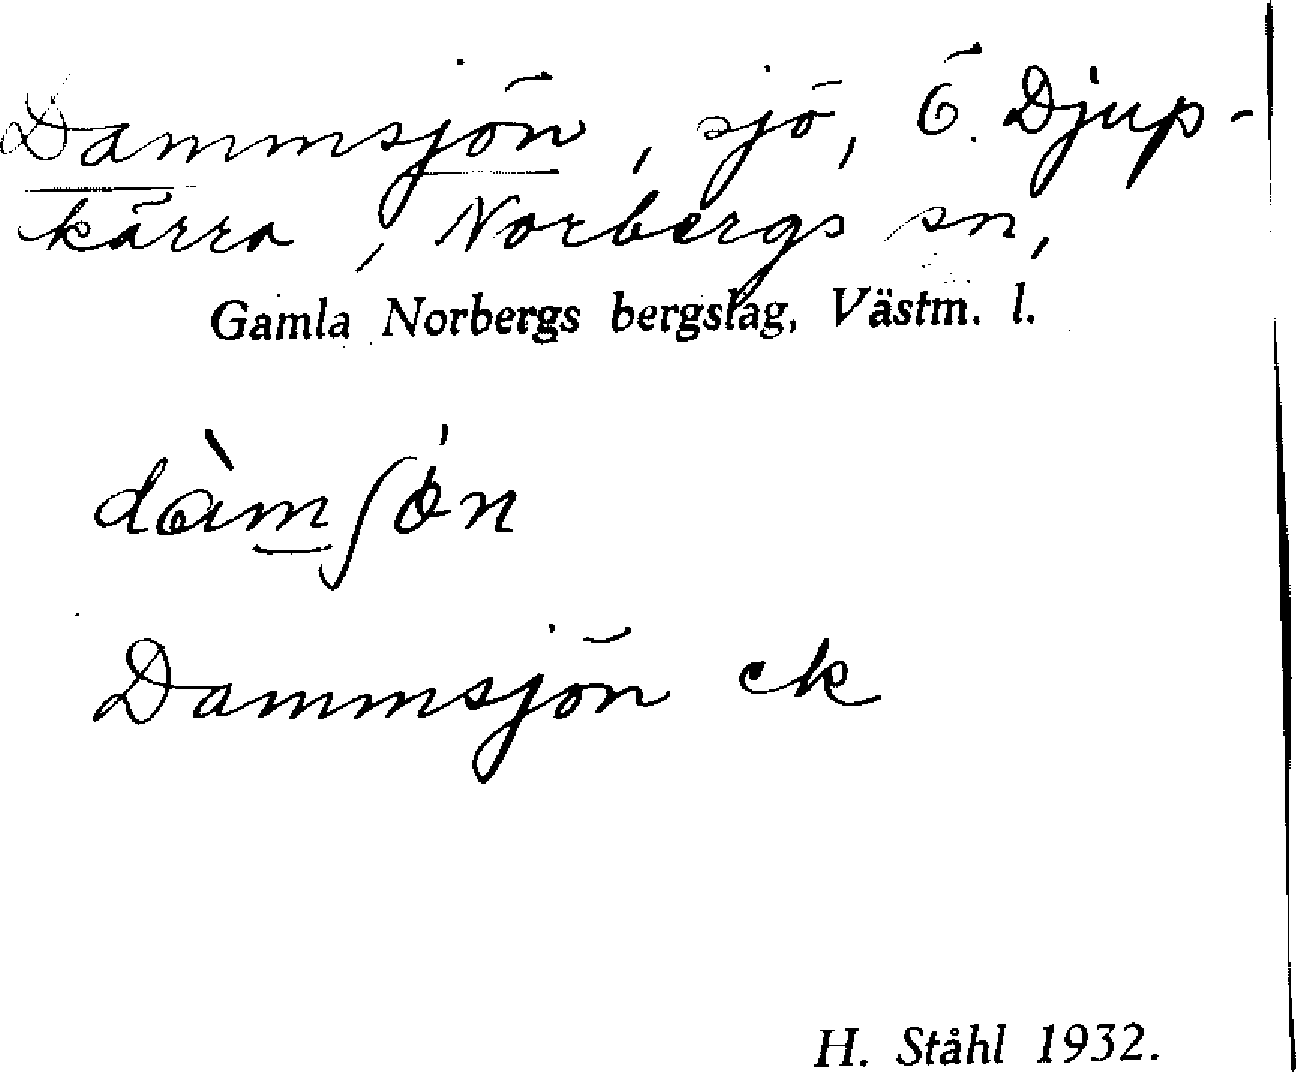 Dammsjön, sjö, Ö. Djup-
kärra, Norbergs sn,
Gamla Norbergs bergslag, Västm. l.
dàmʃön
Dammsjön ek
H. Ståhl 1932.